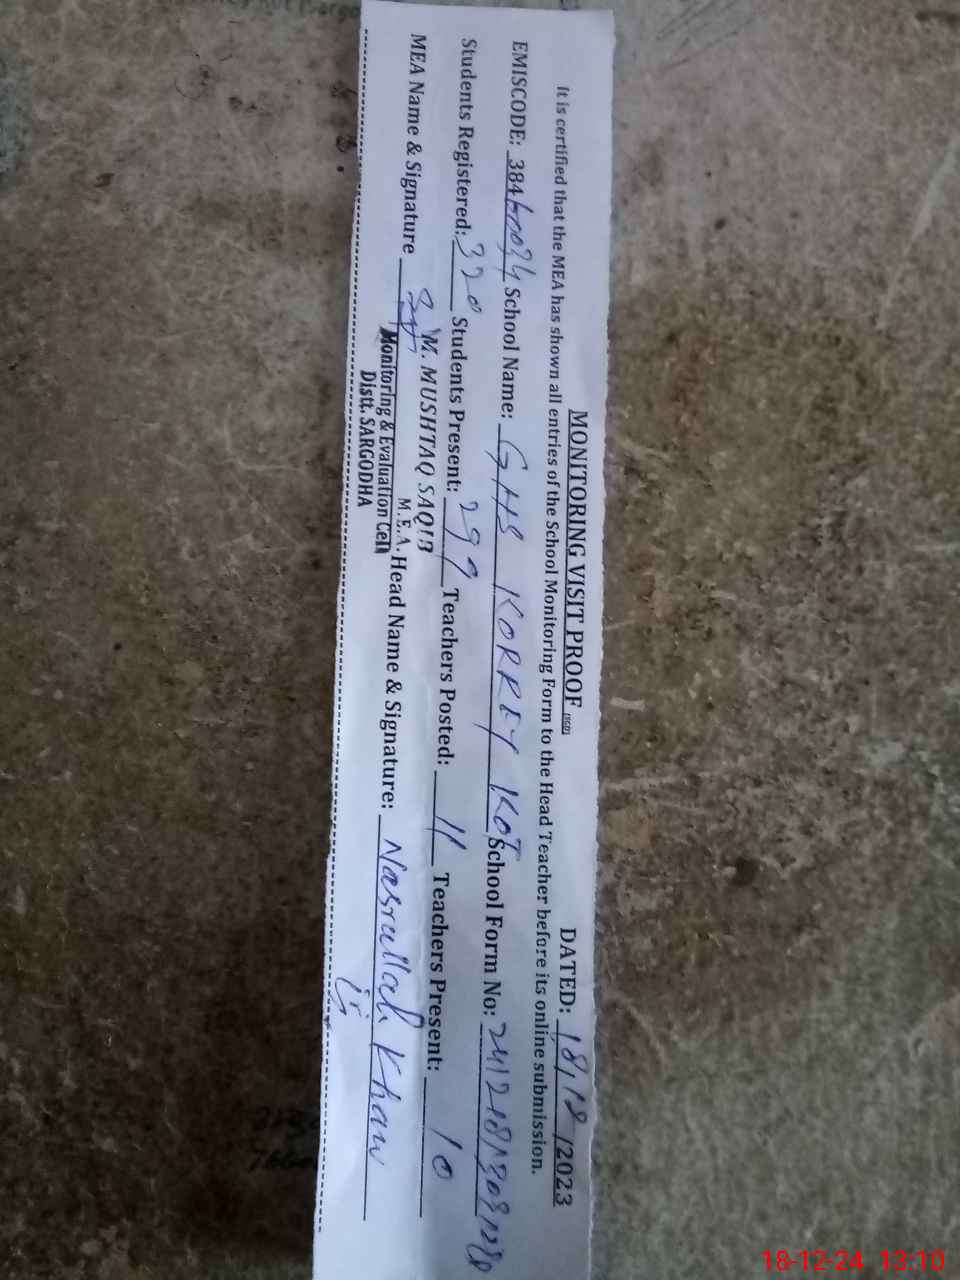 MONITORING VISIT PROOF (SGD) DATED: 18/12/2023
It is certified that the MEA has shown all entries of the School Monitoring Form to the Head Teacher before its online submission.
EMISCODE: 384 School Name: GHS KORREY KOT School Form No:
Students Registered: 320 Students Present: 299 Teachers Posted: 11 Teachers Present: 10
MEA Name & Signature M. MUSHTAQ SAQIB Head Name & Signature: Nasrullah Khan
M.E.A.
Monitoring & Evaluation Cell
Distt. SARGODHA
18-12-24 13:10